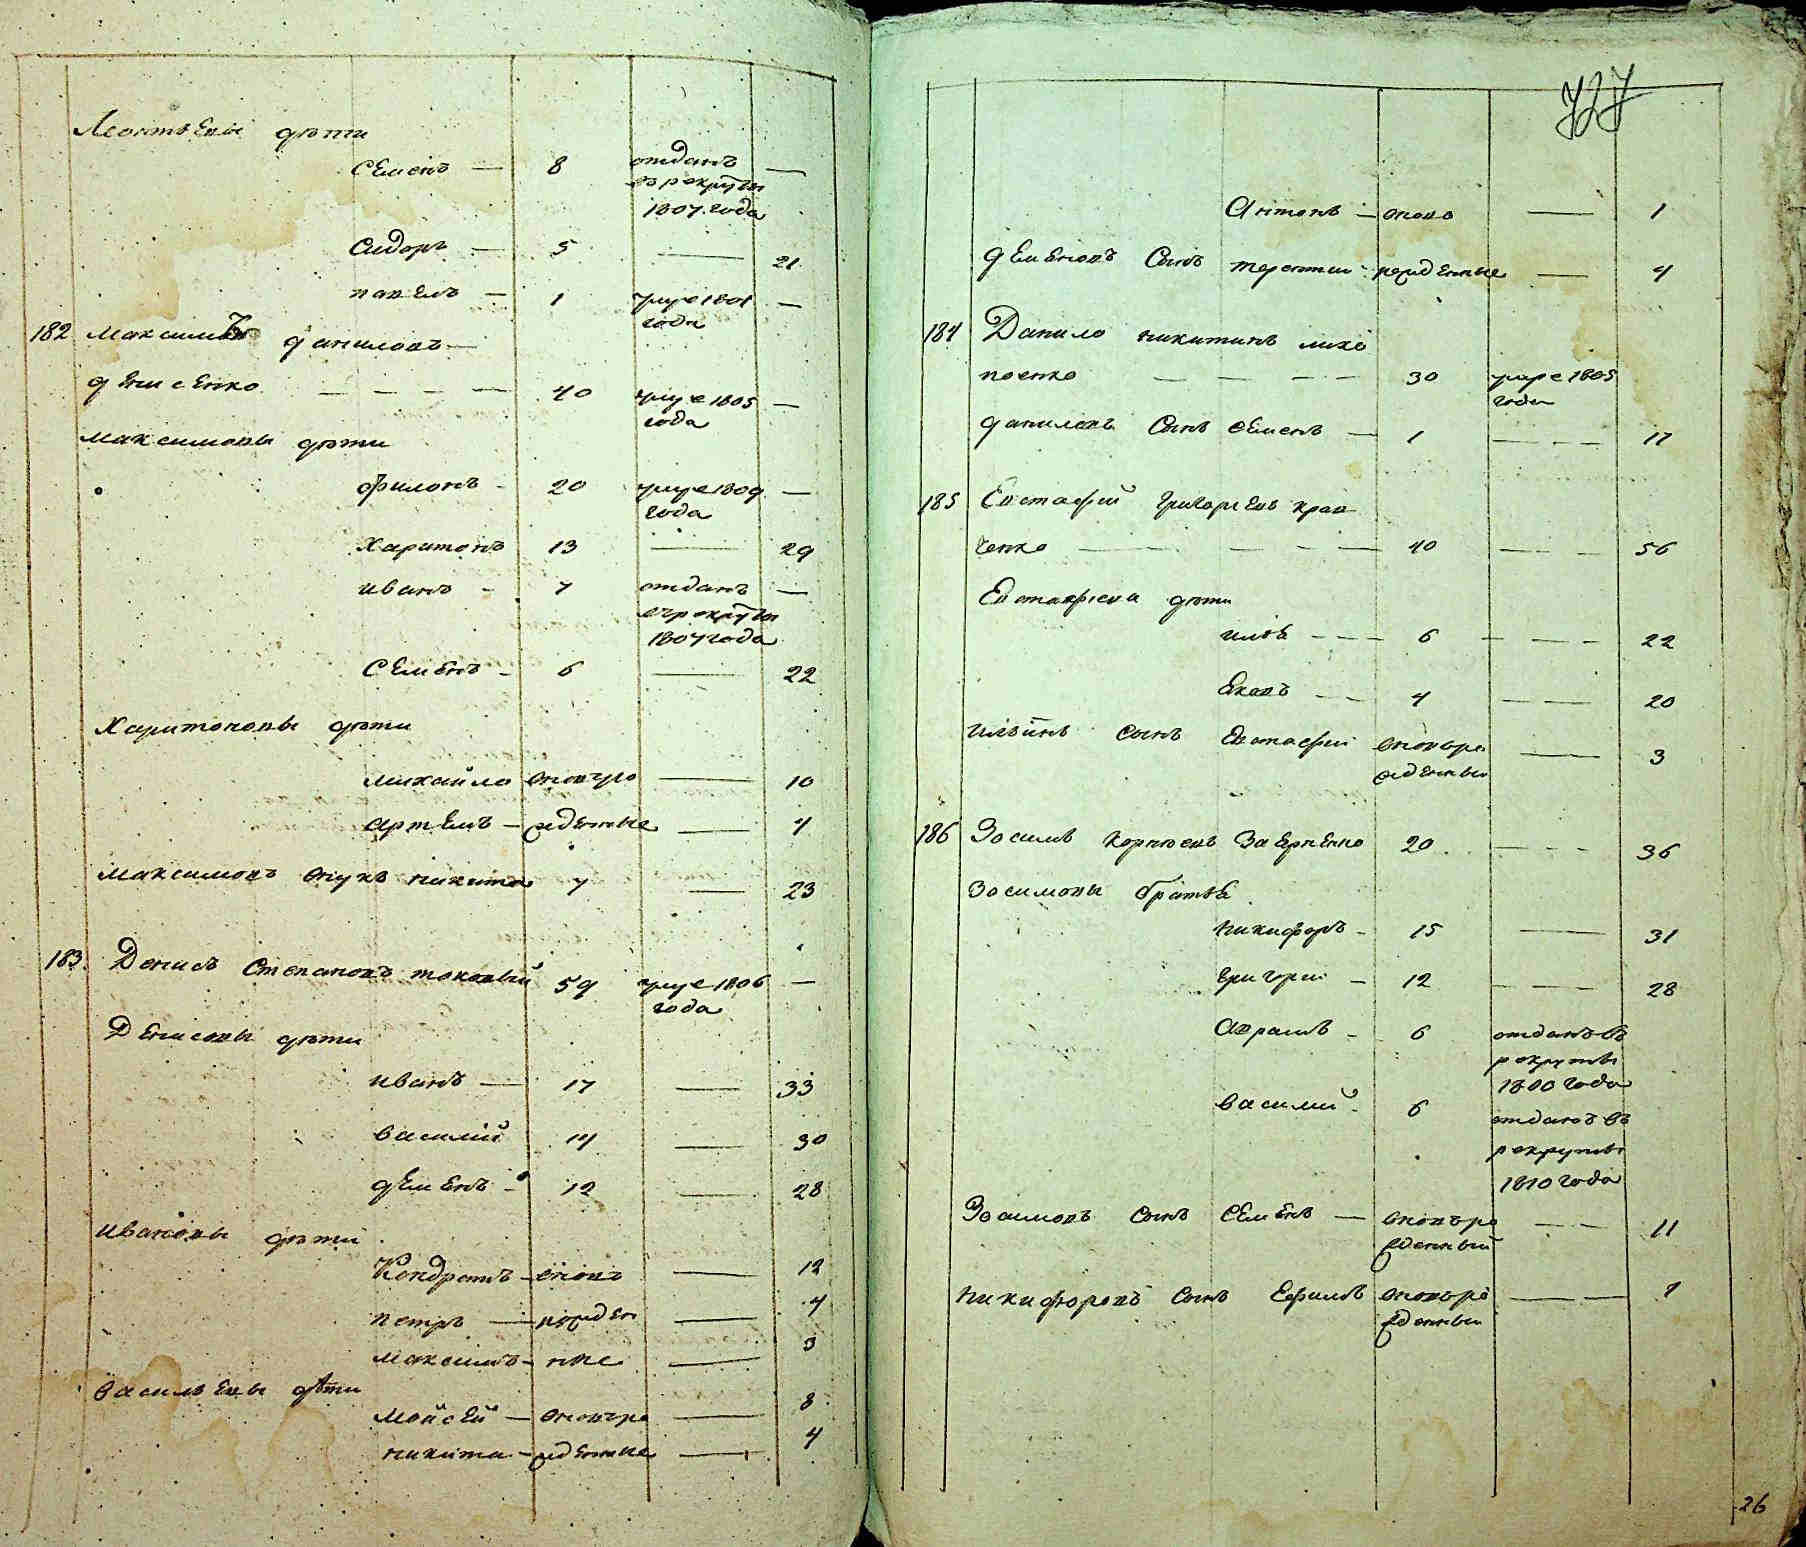 Леонтьевы дѣти
Семенъ — 8 отданъ —
въ рекруты
1807 года
Сидоръ — 5 — 21
павелъ — 1 умре 1801 —
года
182 Максимъ даниловъ —
денисенко — — — — 40 умре 1805 —
года
Максимовы дѣти
филонъ - 20 умре 1809 —
года
Харитонъ 13 — 29
иванъ - 7 отданъ —
въ рекруты
1807 года
Семенъ - 6 — 22
Харитоновы дѣти
михайло вновьро — 10
артемъ — жденные — 4
Максимовъ внукъ никита 7 — 23
183 Денисъ Степановъ токовый 59 умре 1806 —
года
Денисовы дѣти
иванъ — 17 — 33
василий 14 — 30
демьенъ - 12 — 28
ивановы дѣти
Кондратъ — вновъ — 12
петръ — порожден — 4
максимъ — ные — 3
васильевы дѣти
мойсей — вновьро — 8
никита — жденные — 4
727
Антонъ — вновъ — 1
деменовъ Сынъ терентии - рожденные — 4
184 Данило никитинъ лихо
поенко — — — — 30 умре 1805
года
даниловъ Сынъ Семенъ — 1 — — — 17
185 Евстафий григорьевъ крав
ченко — — — — — 40 — — — 56
Евстафиевы дѣти
илья — — — 6 — — — 22
Яковъ — — 4 — — — 20
ильинъ сынъ Евстафий вновьро — 3
жденный
186 Зосимъ корнѣевъ Заверпенко 20 — — — 36
Зосимовы братья
Никифоръ - 15 — 31
григорий — 12 — — — 28
Аврамъ - 6 отданъ въ
рекруты
1800 года
василий - 6 отданъ въ
рекруты
1810 года
Зосимовъ сынъ Семенъ — вновьро — — 11
жденный
никифоровъ сынъ Ефимъ вновьро — — 7
жденный
26